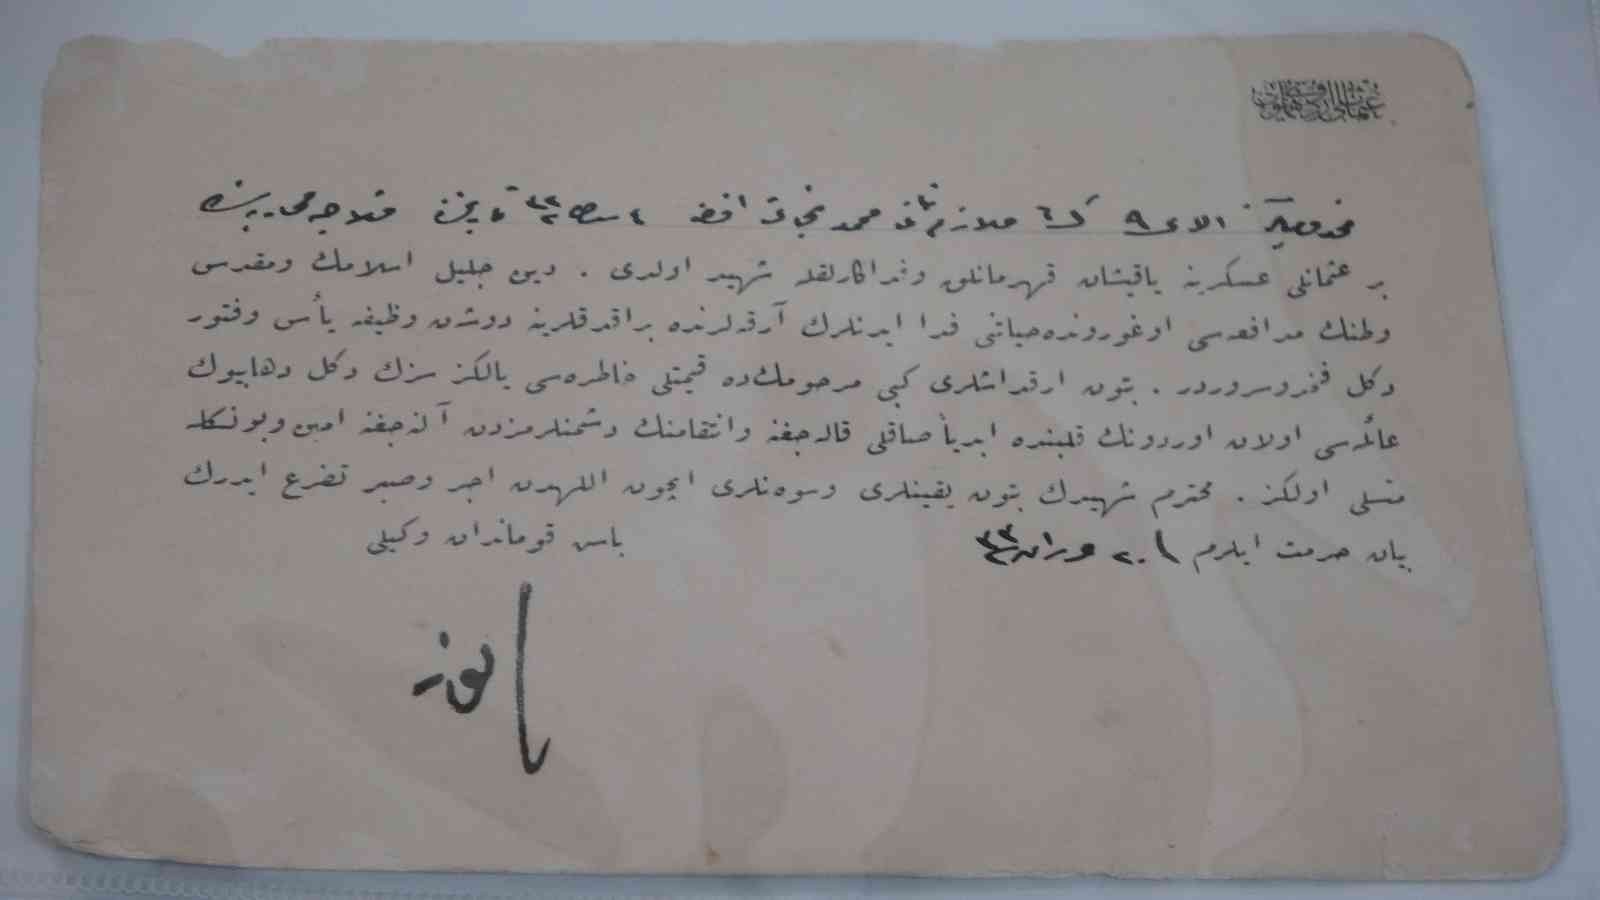 عثمانلی اردوی همایونی
مخدومکز الای ٩ ملازم ثانی محمد نجاتی افندی ٤ مارت ٣٣٢ تاریخنده محاربه سنده
بر عثمانلی عسکرینه یاقیشان قهرمانلق وفداکارلقله شهید اولدی . دین جلیل اسلامك ومقدس
وطنك مدافعه‌سی اوغورونده حیاتنی فدا ایدنلرك آرقه‌لرنده براقدقلرینه دوشن وظیفه یأس وفتور
دکل فخر وسروردر . بتون ارقداشلری کبی مرحومك ده قیمتلی خاطره‌سی یالکز سزك دکل دها بیوك
عائله‌سی اولان اوردونك قلبنده ابدیاً صاقلی قاله‌جغنه وانتقامنك دشمنلرمزدن آلنه‌جغنه امین وبونکله
متسلی اولکز . محترم شهیدك بتون یقینلری وسوه‌نلری ایچون اللهدن اجر وصبر تضرع ایدرك
بیان حرمت ایلرم ٢٠ حزیران ٣٣٢
باش قوماندان وکیلی
انور